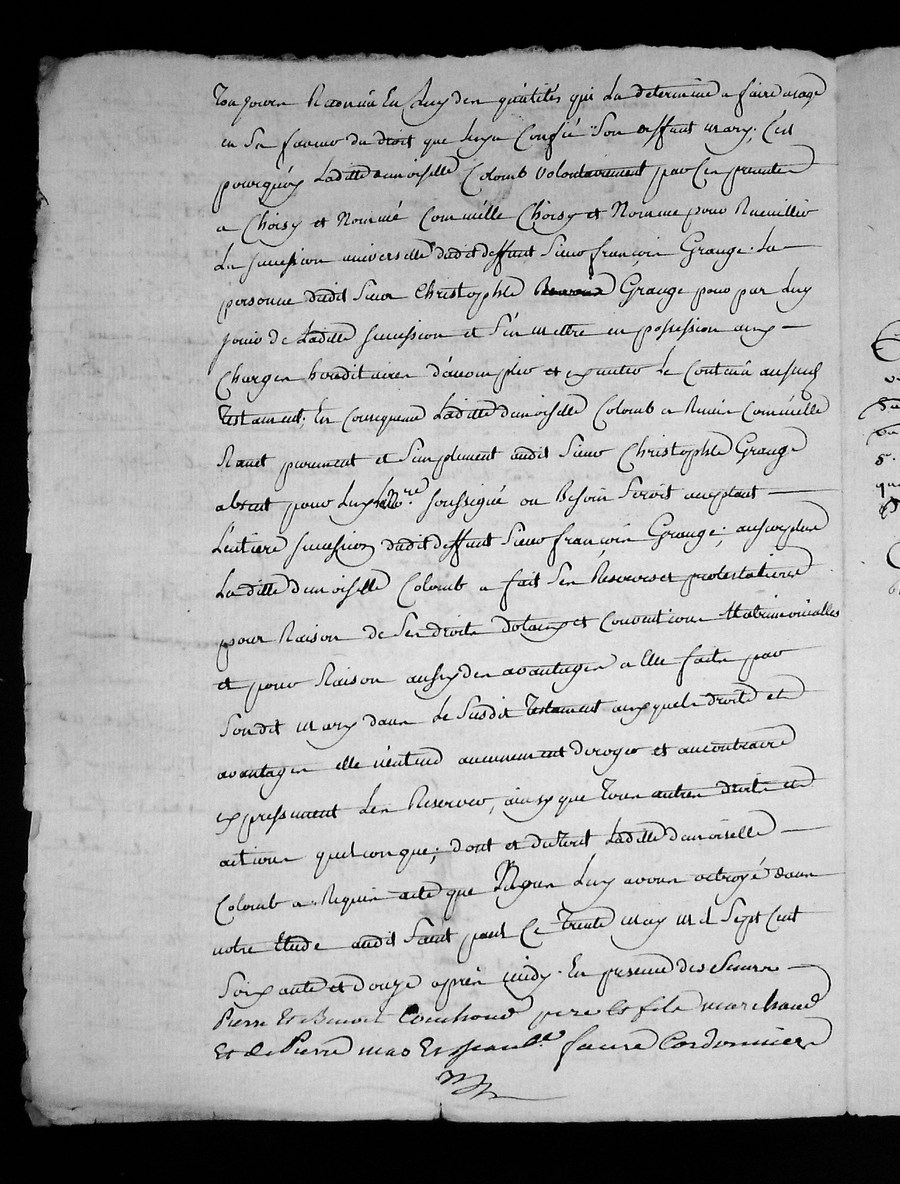 Toujours Reconnu En Luy des quâlités qui La determine a faire usage
en Sa faveur du droit que luy a Confié Son deffunt mary; C'est
pourquoy Laditte demoiselle Colomb volontairement par Ces presentes
a Choisy et Nommé Commélle Choisy et Nomme pour Recuillir
La succession universelle dudit deffunt Sieur françois Grange. La
personne dudit Sieur Christophle Grange pour par Luy
jouir de Laditte succession et S'en mettre en possession aux
Charges héréditaires d'accomplir et executer Le Contenû audit
Testament; En Consequence Laditte demoiselle Colomb a Remis Commélle
Remet purement et Simplement audit Sieur Christophle Grange
absent pour Luy Le Nore. soussigné ou Besoin Seroit acceptant
L'entiere succession dudit deffunt Sieur françois Grange; au surplus
La ditte demoiselle Colomb a fait Ses Reserves et protestations
pour Raison de Ses droits dotaux et Conventions Matrimonialles
et pour Raison aussy des avantages a Elle faits par
Sondit mary dans Le Susdit Testament auxquels droits et
avantages elle n'entend aucunement deroger et au contraire
expressement Les Reserver, ainsy que Tous autres droits et
actions quelconque; dont et du tout Laditte demoiselle
Colomb a Requis acte que Nous Luy avons octroyé dans
notre Etude audit Saint paul Ce Trente may mil Sept Cent
Soixante et douze après midy. En presence des Sieurs
Pierre Et Benoit pere Et fils marchand
Et de Pierre mas Et Jean Bte. faure Cordonnier